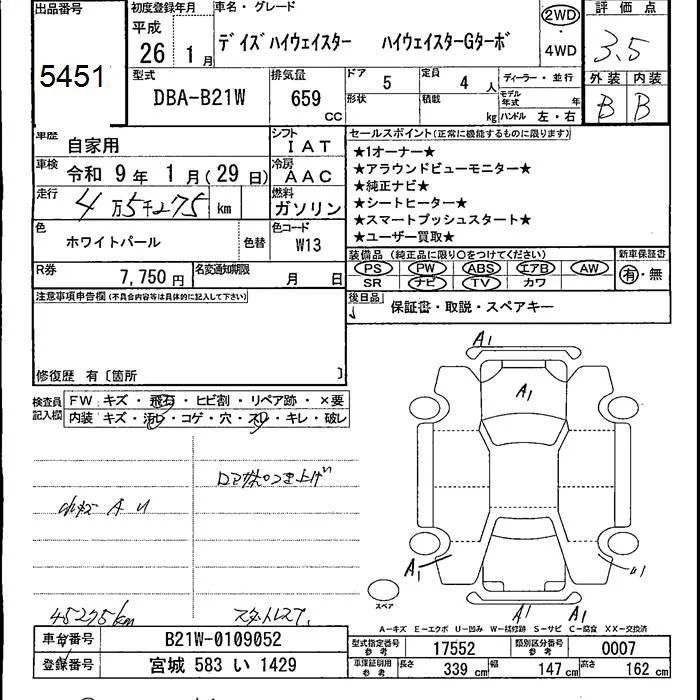 出品番号
5451
初度登録年月
平成
26 1月
車名・グレード
デイズハイウェイスター ハイウェイスターGターボ
2WD
・
4WD
評価点
3.5
外装 内装
B B
型式
DBA-B21W
排気量
659
CC
ドア 5
定員 4 人
形状
積載
kg
ディーラー・並行
モデル年式 年
ハンドル 左・右
車歴
自家用
シフト
IAT
車検
令和 9年 1月(29日)
冷房
AAC
走行
4万5千275 km
燃料
ガソリン
色
ホワイトパール
色替
色コード
W13
R券
7,750円
名変通知期限
月 日
セールスポイント(正常に機能するものに限ります)
★1オーナー★
★アラウンドビューモニター★
★純正ナビ★
★シートヒーター★
★スマートプッシュスタート★
★ユーザー買取★
装備品 (純正品に限り○をつけてください)
PS PW ABS エアB AW
SR ナビ TV カワ
新車保証書
有・無
後日品
保証書・取説・スペアキー
注意事項申告欄(不具合内容等は具体的に記入して下さい)
修復歴 有〔箇所 〕
検査員
記入欄
FW: キズ・飛石・ヒビ割・リペア跡・×要
内装: キズ・汚レ・コゲ・穴・スレ・キレ・破レ
小キズ A U
45275km
A1
A1
A1
A1
A1
スペア
A-キズ E-エクボ U-凹み W-補修跡 S-サビ C-腐食 XX-交換済
車台番号
B21W-0109052
登録番号
宮城 583 い 1429
型式指定番号
参考
17552
類別区分番号
参考
0007
車庫証明用
参考
長さ 339 cm 幅 147 cm 高さ 162 cm